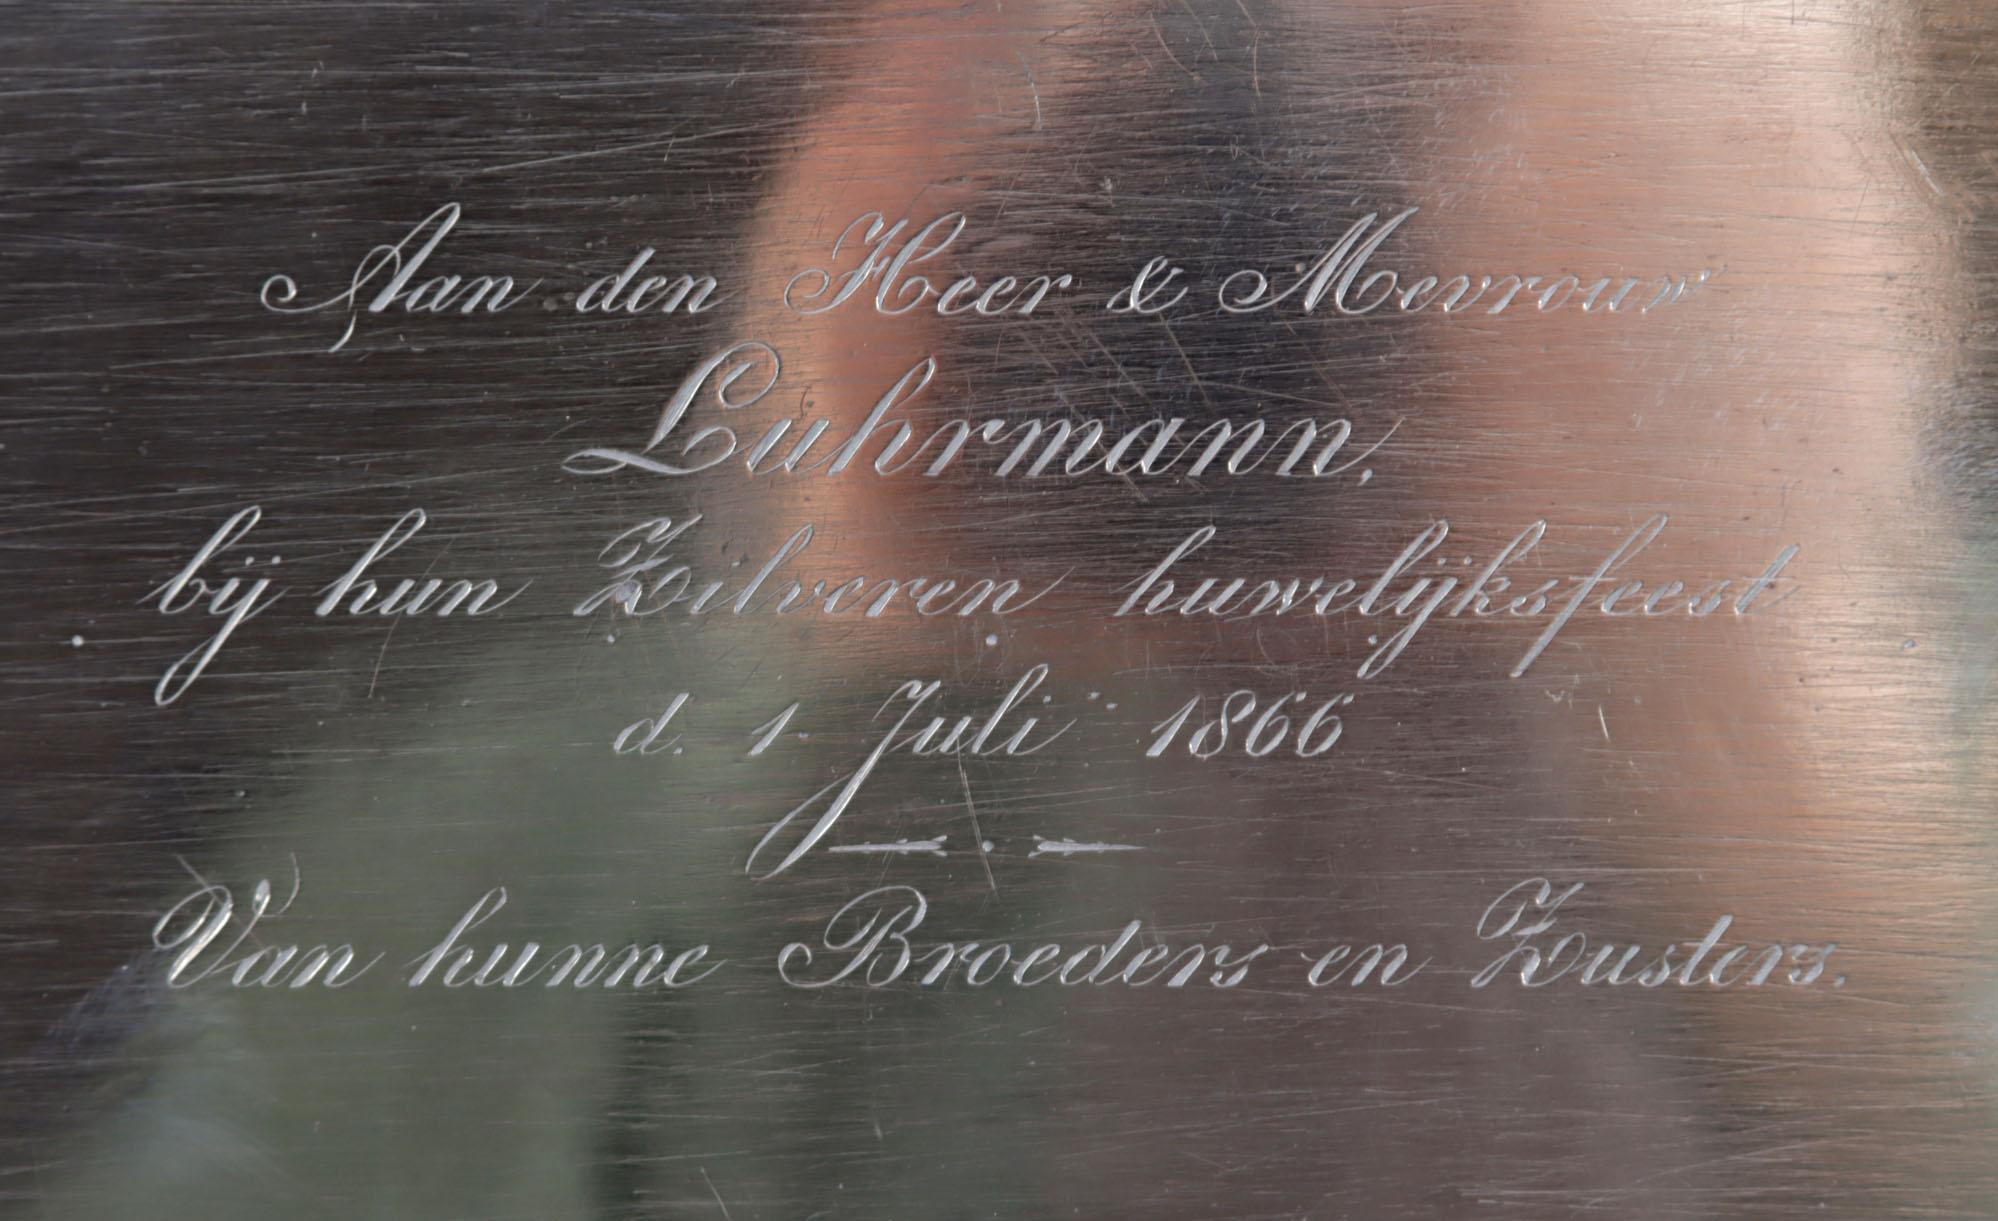 Aan den Heer & Mevrouw
Luhrmann,
bij hun Zilveren huwelijksfeest
d. 1. Juli 1866
Van hunne Broeders en Zusters.